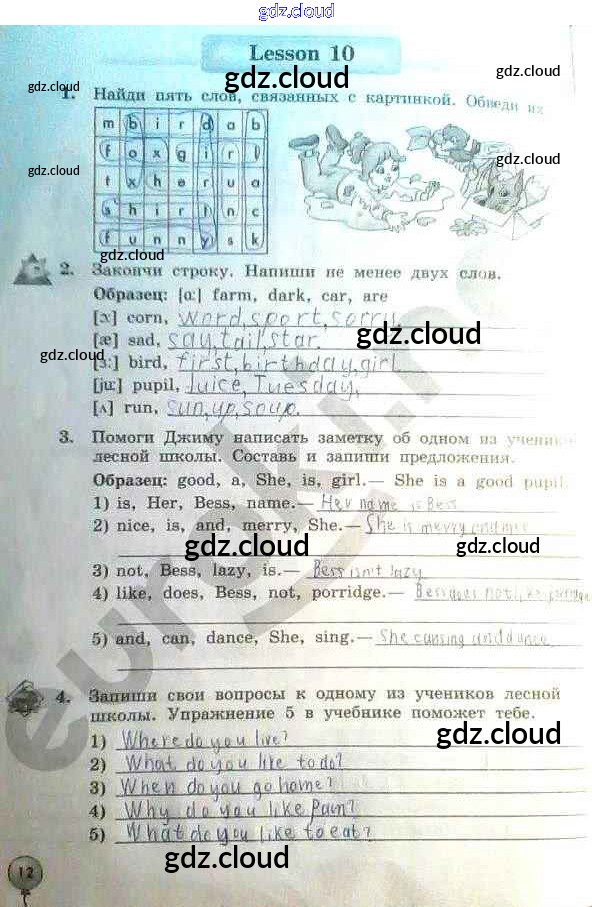 gdz.cloud
Lesson 10
gdz.cloud
gdz.cloud
gdz.cloud
1. Найди пять слов, связанных с картинкой. Обведи их
m b i r d a b
f o x g i r l
t x h e r u a
s h i r t n c
f u n n y s k
gdz.cloud
gdz.cloud
gdz.cloud
gdz.cloud
2. Закончи строку. Напиши не менее двух слов.
Образец: [ɑ:] farm, dark, car, are
[ɔ:] corn, word, sport, sorry,
gdz.cloud
[æ] sad, say, tail, star.
gdz.cloud
[ɜ:] bird, first, birthday, girl
[ju:] pupil, Juice, Tuesday,
[ʌ] run, sun, up, soup.
3. Помоги Джиму написать заметку об одном из учеников
лесной школы. Составь и запиши предложения.
Образец: good, a, She, is, girl.— She is a good pupil
1) is, Her, Bess, name.— Her name is Bess
2) nice, is, and, merry, She.— She is merry and nice
gdz.cloud
gdz.cloud
3) not, Bess, lazy, is.— Bess isn't lazy
4) like, does, Bess, not, porridge.— Bess does not like porridge
5) and, can, dance, She, sing.— She can sing and dance
4. Запиши свои вопросы к одному из учеников лесной
школы. Упражнение 5 в учебнике поможет тебе.
1) Where do you live?
gdz.cloud
2) What do you like to do?
3) When do you go home?
4) Why do you like
5) What do you like to eat?
gdz.cloud
gdz.cloud
12
eureki.me